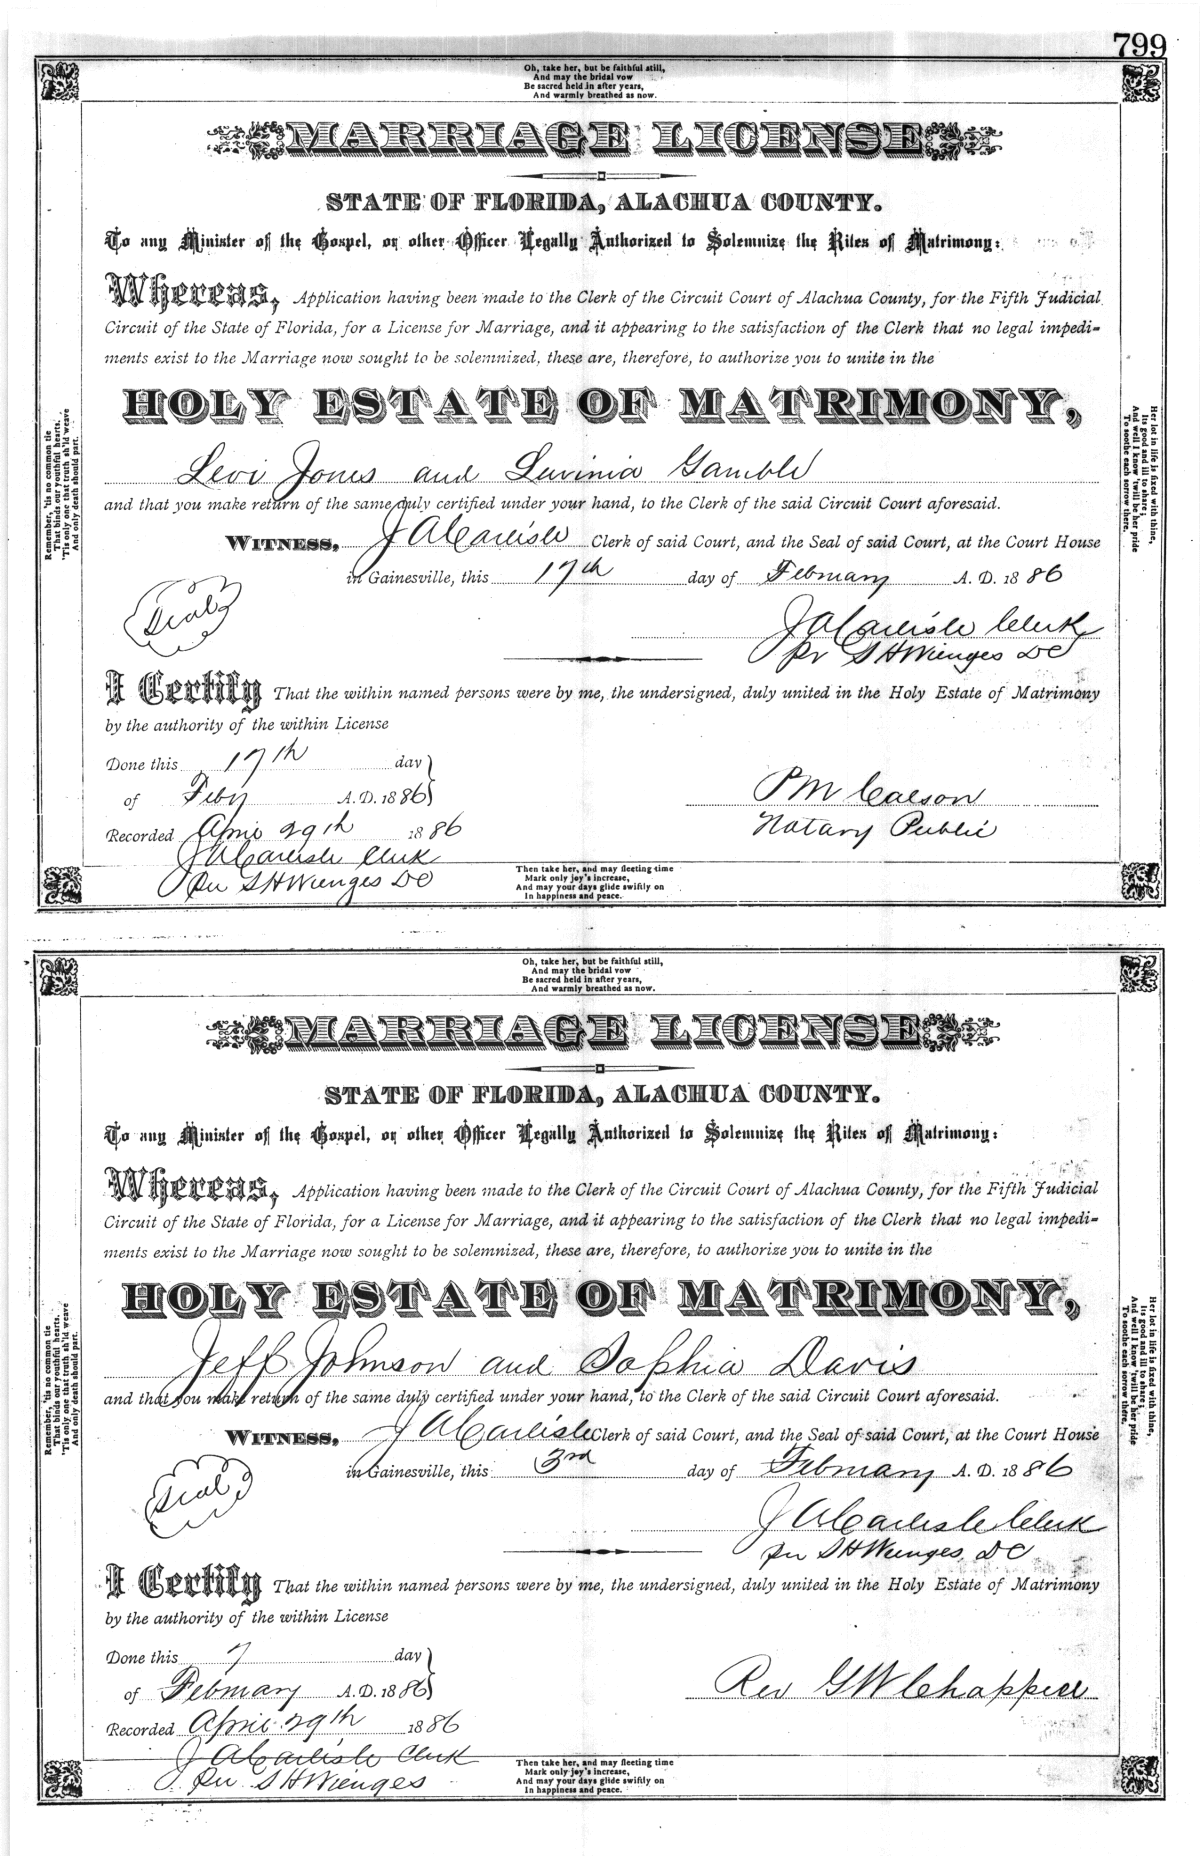 799
Oh, take her, but be faithful still,
And may the bridal vow
Be sacred held in after years,
And warmly breathed as now.
MARRIAGE LICENSE
STATE OF FLORIDA, ALACHUA COUNTY.
To any Minister of the Gospel, or other Officer Legally Authorized to Solemnize the Rites of Matrimony:
Whereas, Application having been made to the Clerk of the Circuit Court of Alachua County, for the Fifth Judicial
Circuit of the State of Florida, for a License for Marriage, and it appearing to the satisfaction of the Clerk that no legal impedi-
ments exist to the Marriage now sought to be solemnized, these are, therefore, to authorize you to unite in the
HOLY ESTATE OF MATRIMONY,
Levi Jones and Luvinia Gamble
and that you make return of the same duly certified under your hand, to the Clerk of the said Circuit Court aforesaid.
WITNESS, J A Carlisle Clerk of said Court, and the Seal of said Court, at the Court House
in Gainesville, this 17th day of February A. D. 1886
Seal
J A Carlisle Clerk
pr S H Wienges DC
I Certify That the within named persons were by me, the undersigned, duly united in the Holy Estate of Matrimony
by the authority of the within License
Done this 17th day
of Feby A. D. 1886
P M Colson
Recorded April 29th 1886
Notary Public
J A Carlisle Clerk
pr S H Wienges DC
Remember, 'tis no common tie
That binds our youthful hearts,
'Tis only one that truth sh'ld weave
And only death should part.
Her lot in life is fixed with thine,
Its good and ill to share;
And well I know 'twill be her pride
To soothe each sorrow there.
Then take her, and may fleeting time
Mark only joy's increase,
And may your days glide swiftly on
In happiness and peace.
Oh, take her, but be faithful still,
And may the bridal vow
Be sacred held in after years,
And warmly breathed as now.
MARRIAGE LICENSE
STATE OF FLORIDA, ALACHUA COUNTY.
To any Minister of the Gospel, or other Officer Legally Authorized to Solemnize the Rites of Matrimony:
Whereas, Application having been made to the Clerk of the Circuit Court of Alachua County, for the Fifth Judicial
Circuit of the State of Florida, for a License for Marriage, and it appearing to the satisfaction of the Clerk that no legal impedi-
ments exist to the Marriage now sought to be solemnized, these are, therefore, to authorize you to unite in the
HOLY ESTATE OF MATRIMONY,
Jeff Johnson and Sophia Davis
and that you make return of the same duly certified under your hand, to the Clerk of the said Circuit Court aforesaid.
WITNESS, J A Carlisle Clerk of said Court, and the Seal of said Court, at the Court House
in Gainesville, this 3rd day of February A. D. 1886
Seal
J A Carlisle Clerk
pr S H Wienges DC
I Certify That the within named persons were by me, the undersigned, duly united in the Holy Estate of Matrimony
by the authority of the within License
Done this 7 day
of February A. D. 1886
Rev G W Chappell
Recorded April 29th 1886
J A Carlisle Clerk
pr S H Wienges
Remember, 'tis no common tie
That binds our youthful hearts,
'Tis only one that truth sh'ld weave
And only death should part.
Her lot in life is fixed with thine,
Its good and ill to share;
And well I know 'twill be her pride
To soothe each sorrow there.
Then take her, and may fleeting time
Mark only joy's increase,
And may your days glide swiftly on
In happiness and peace.